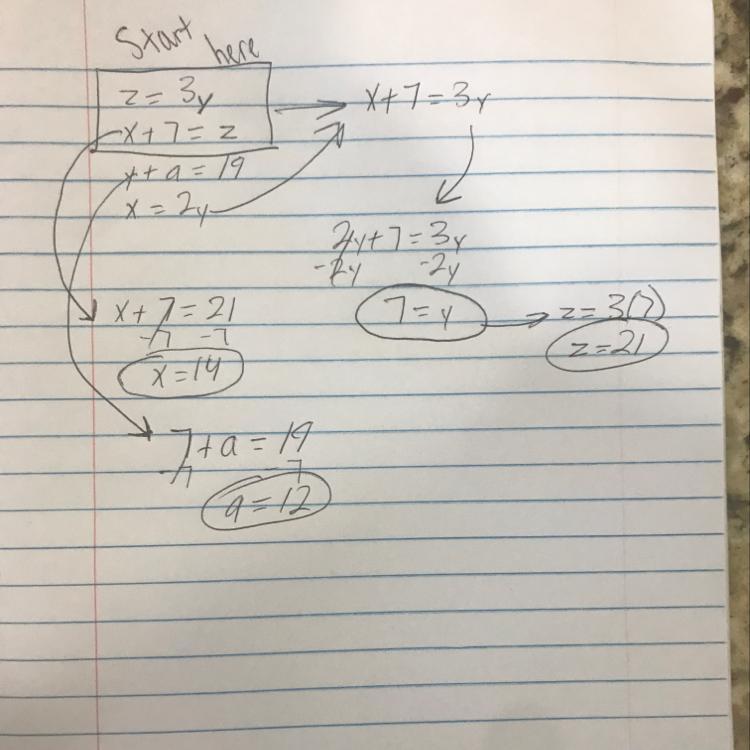 Start here
z = 3y
x + 7 = z
x + a = 19
x = 2y
x + 7 = 3y
2y + 7 = 3y
-2y -2y
7 = y
z = 3(7)
z = 21
x + 7 = 21
-7 -7
x = 14
7 + a = 19
-7 -7
a = 12